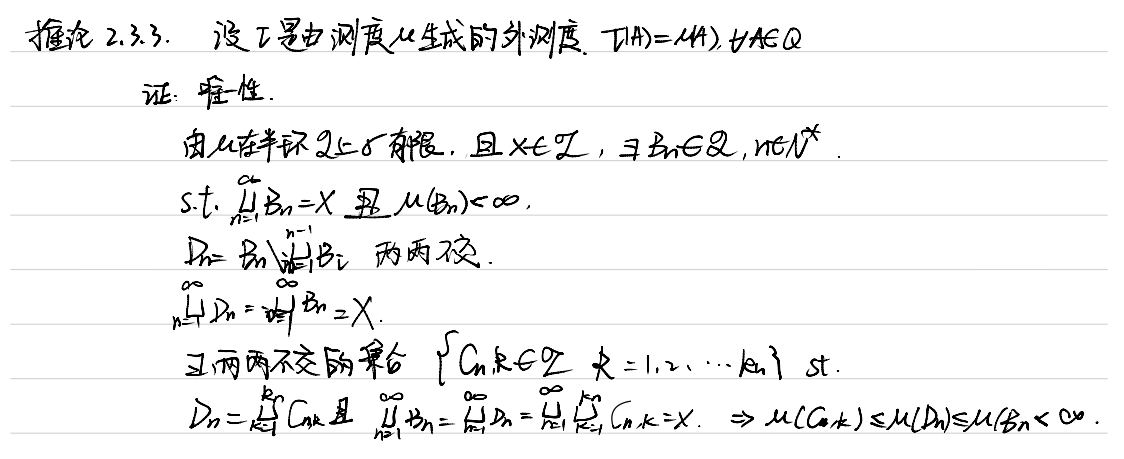 推论 2.3.3. 设 τ 是由测度 μ 生成的外测度. τ(A)=μ(A), ∀A∈Q
证: 唯一性.
由 μ 在半环 Q 上 σ 有限. 且 X∈Q, ∃ Bn∈Q, n∈N*.
s.t. ∞⋃n=1 Bn=X 且 μ(Bn)<∞.
Dn= Bn\ n-1⋃i=1 Bi 两两不交.
∞⋃n=1 Dn = ∞⋃ Bn = X.
∃ 两两不交的集合 {Cn,k∈Q k=1,2,…kn} st.
Dn= kn⋃k=1 Cn,k 且 ∞⋃n=1 Bn= ∞⋃n=1 Dn= ∞⋃n=1 kn⋃k=1 Cn,k=X. ⇒ μ(Cn,k)≤μ(Dn)≤μ(Bn<∞.